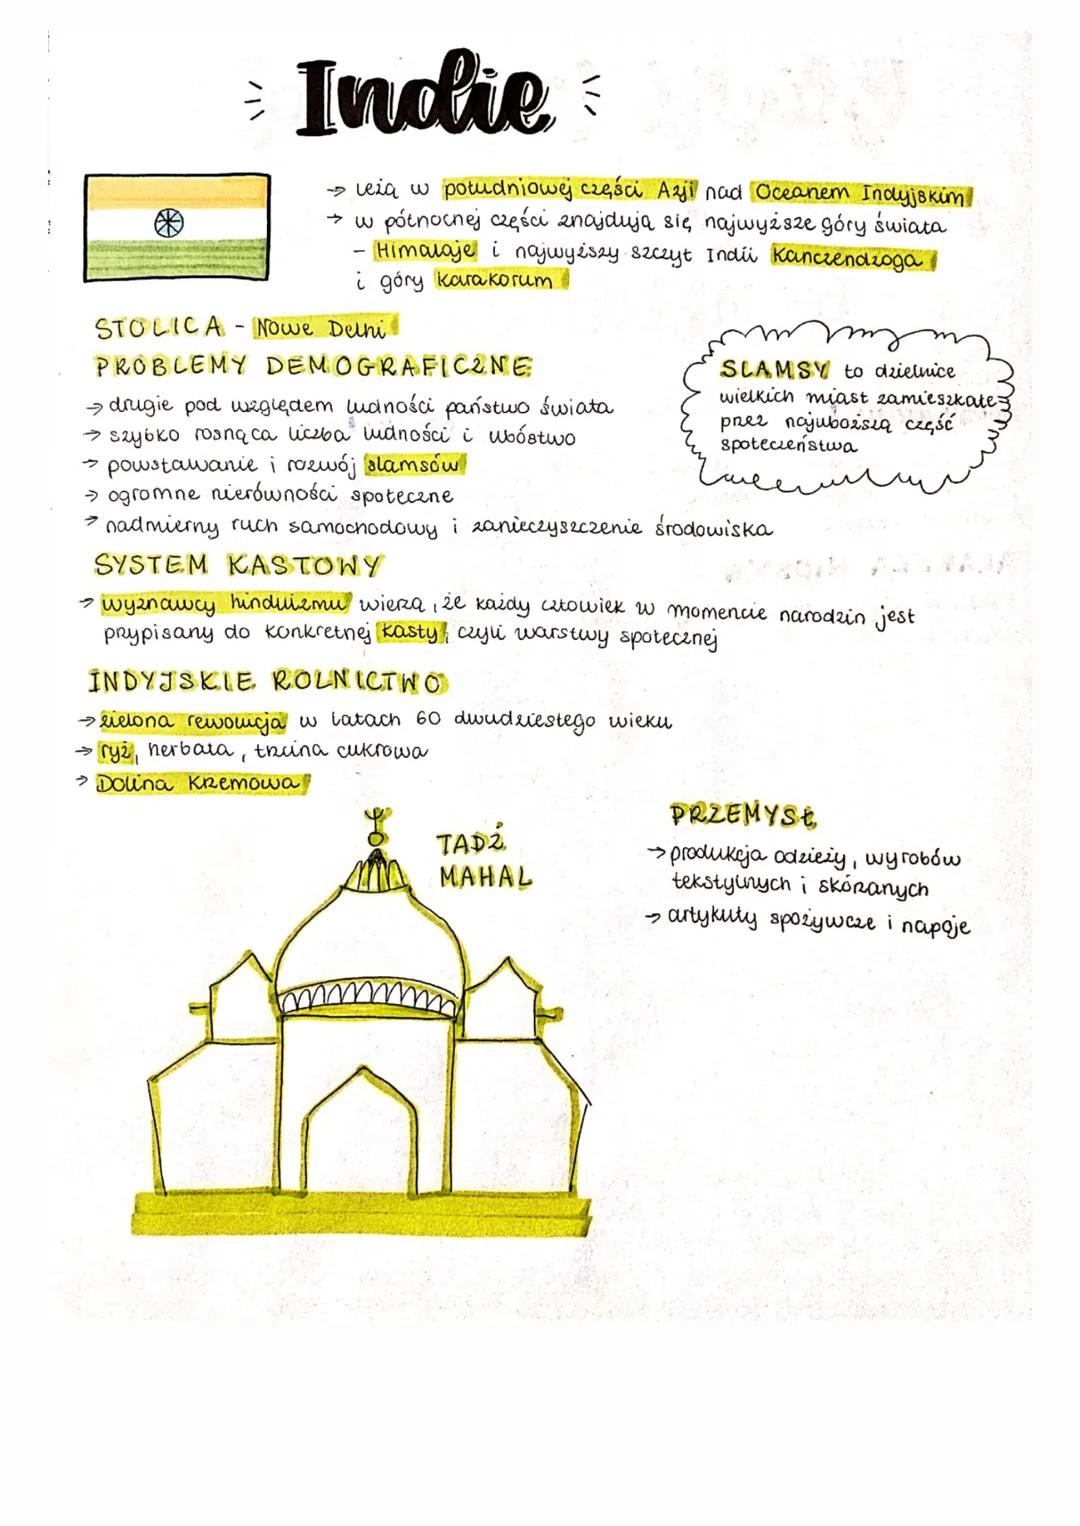 Indie
→ leżą w południowej części Azji nad Oceanem Indyjskim
→ w północnej części znajdują się najwyższe góry świata
- Himalaje i najwyższy szczyt Indii Kanczendzoga
i góry Karakorum
STOLICA - Nowe Delhi
PROBLEMY DEMOGRAFICZNE
→ drugie pod względem ludności państwo świata
→ szybko rosnąca liczba ludności i ubóstwo
→ powstawanie i rozwój slamsów
→ ogromne nierówności społeczne
→ nadmierny ruch samochodowy i zanieczyszczenie środowiska
SLAMSY to dzielnice
wielkich miast zamieszkałe
przez najuboższą część
społeczeństwa
SYSTEM KASTOWY
→ wyznawcy hinduizmu wierzą, że każdy człowiek w momencie narodzin jest
przypisany do konkretnej kasty, czyli warstwy społecznej
INDYJSKIE ROLNICTWO
→ zielona rewolucja w latach 60 dwudziestego wieku
→ ryż, herbata, trzcina cukrowa
→ Dolina Krzemowa
TADŻ
MAHAL
PRZEMYSŁ
→ produkcja odzieży, wyrobów
tekstylnych i skórzanych
→ artykuły spożywcze i napoje